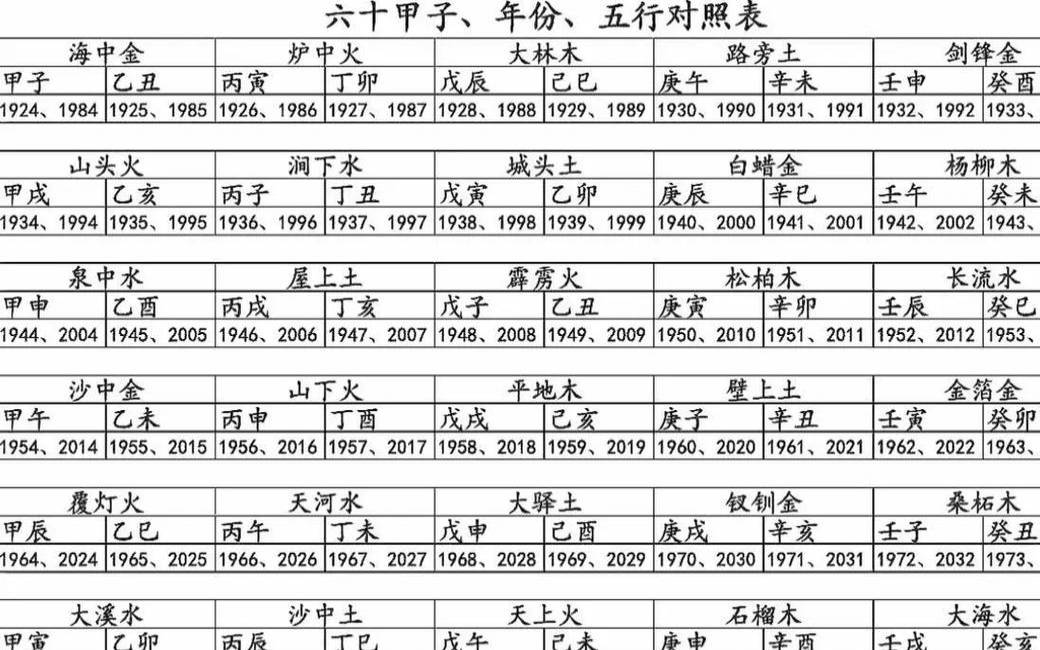 六十甲子、年份、五行对照表
海中金 炉中火 大林木 路旁土 剑锋金
甲子 乙丑 丙寅 丁卯 戊辰 己巳 庚午 辛未 壬申 癸酉
1924、1984 1925、1985 1926、1986 1927、1987 1928、1988 1929、1989 1930、1990 1931、1991 1932、1992 1933、
山头火 涧下水 城头土 白蜡金 杨柳木
甲戌 乙亥 丙子 丁丑 戊寅 乙卯 庚辰 辛巳 壬午 癸未
1934、1994 1935、1995 1936、1996 1937、1997 1938、1998 1939、1999 1940、2000 1941、2001 1942、2002 1943、
泉中水 屋上土 霹雳火 松柏木 长流水
甲申 乙酉 丙戌 丁亥 戊子 乙丑 庚寅 辛卯 壬辰 癸巳
1944、2004 1945、2005 1946、2006 1947、2007 1948、2008 1949、2009 1950、2010 1951、2011 1952、2012 1953、
沙中金 山下火 平地木 壁上土 金箔金
甲午 乙未 丙申 丁酉 戊戌 己亥 庚子 辛丑 壬寅 癸卯
1954、2014 1955、2015 1956、2016 1957、2017 1958、2018 1959、2019 1960、2020 1961、2021 1962、2022 1963、
覆灯火 天河水 大驿土 钗钏金 桑柘木
甲辰 乙巳 丙午 丁未 戊申 己酉 庚戌 辛亥 壬子 癸丑
1964、2024 1965、2025 1966、2026 1967、2027 1968、2028 1969、2029 1970、2030 1971、2031 1972、2032 1973、
大溪水 沙中土 天上火 石榴木 大海水
甲寅 乙卯 丙辰 丁巳 戊午 己未 庚申 辛酉 壬戌 癸亥